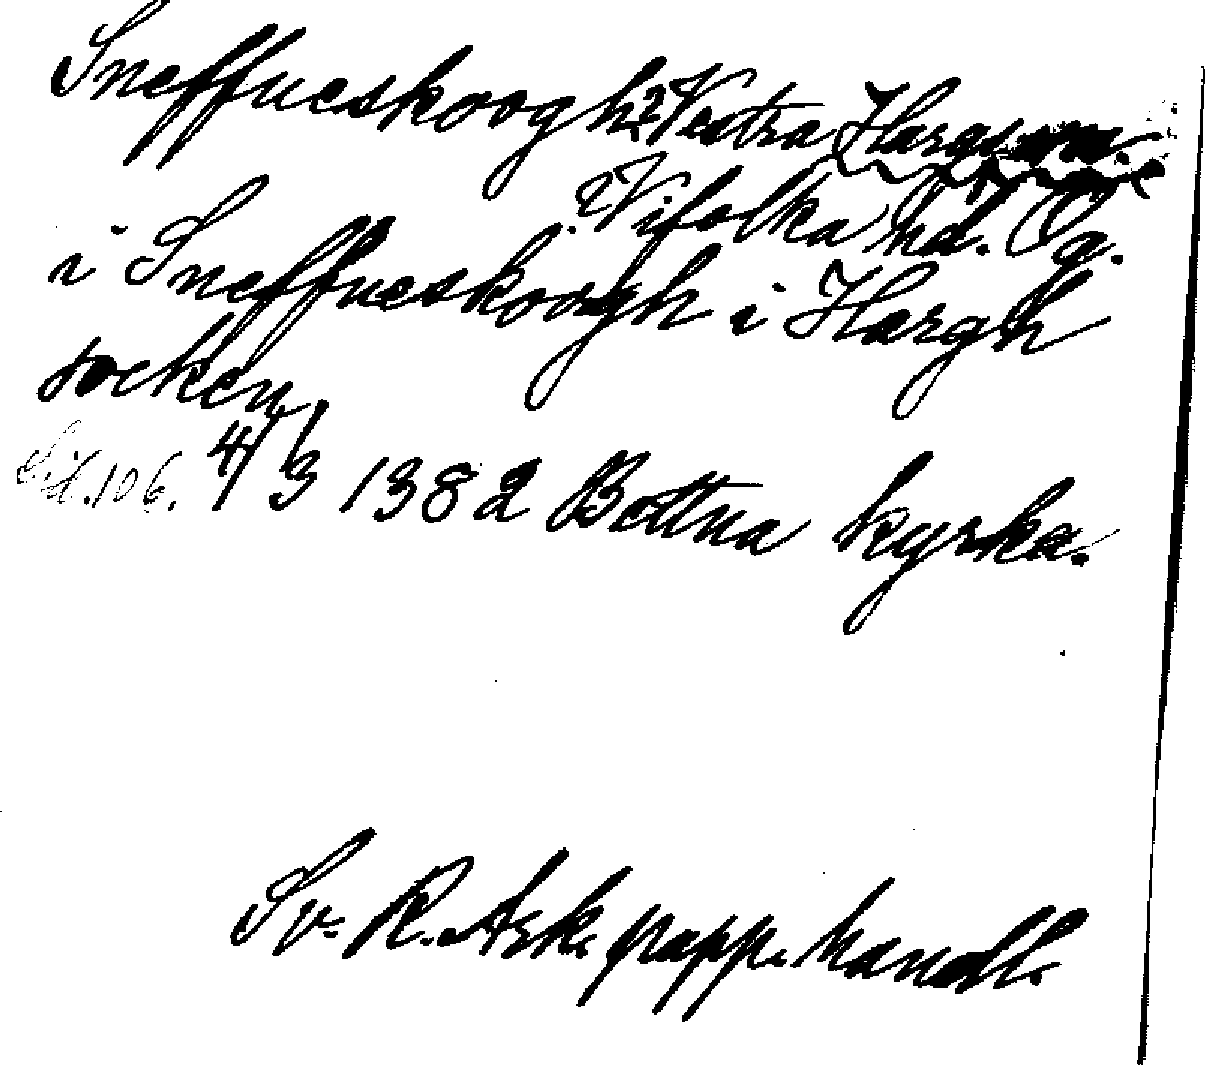 Sneffueskoogh? Vestra Hargs
? Vifolka hd. Ög.
i Sneffueskoogh i Hargh
socken,
Sd. 106. 4/3 1382 Bottna kyrka.
Sv. R. Ark. papp. handl.